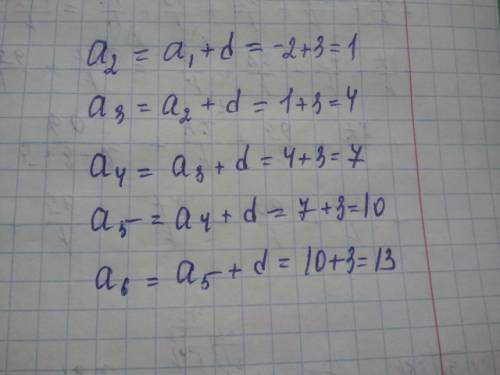 a₂ = a₁ + d = -2+3=1
a₃ = a₂ + d = 1+3=4
a₄ = a₃ + d = 4+3=7
a₅ = a₄ + d = 7+3=10
a₆ = a₅ + d = 10+3=13